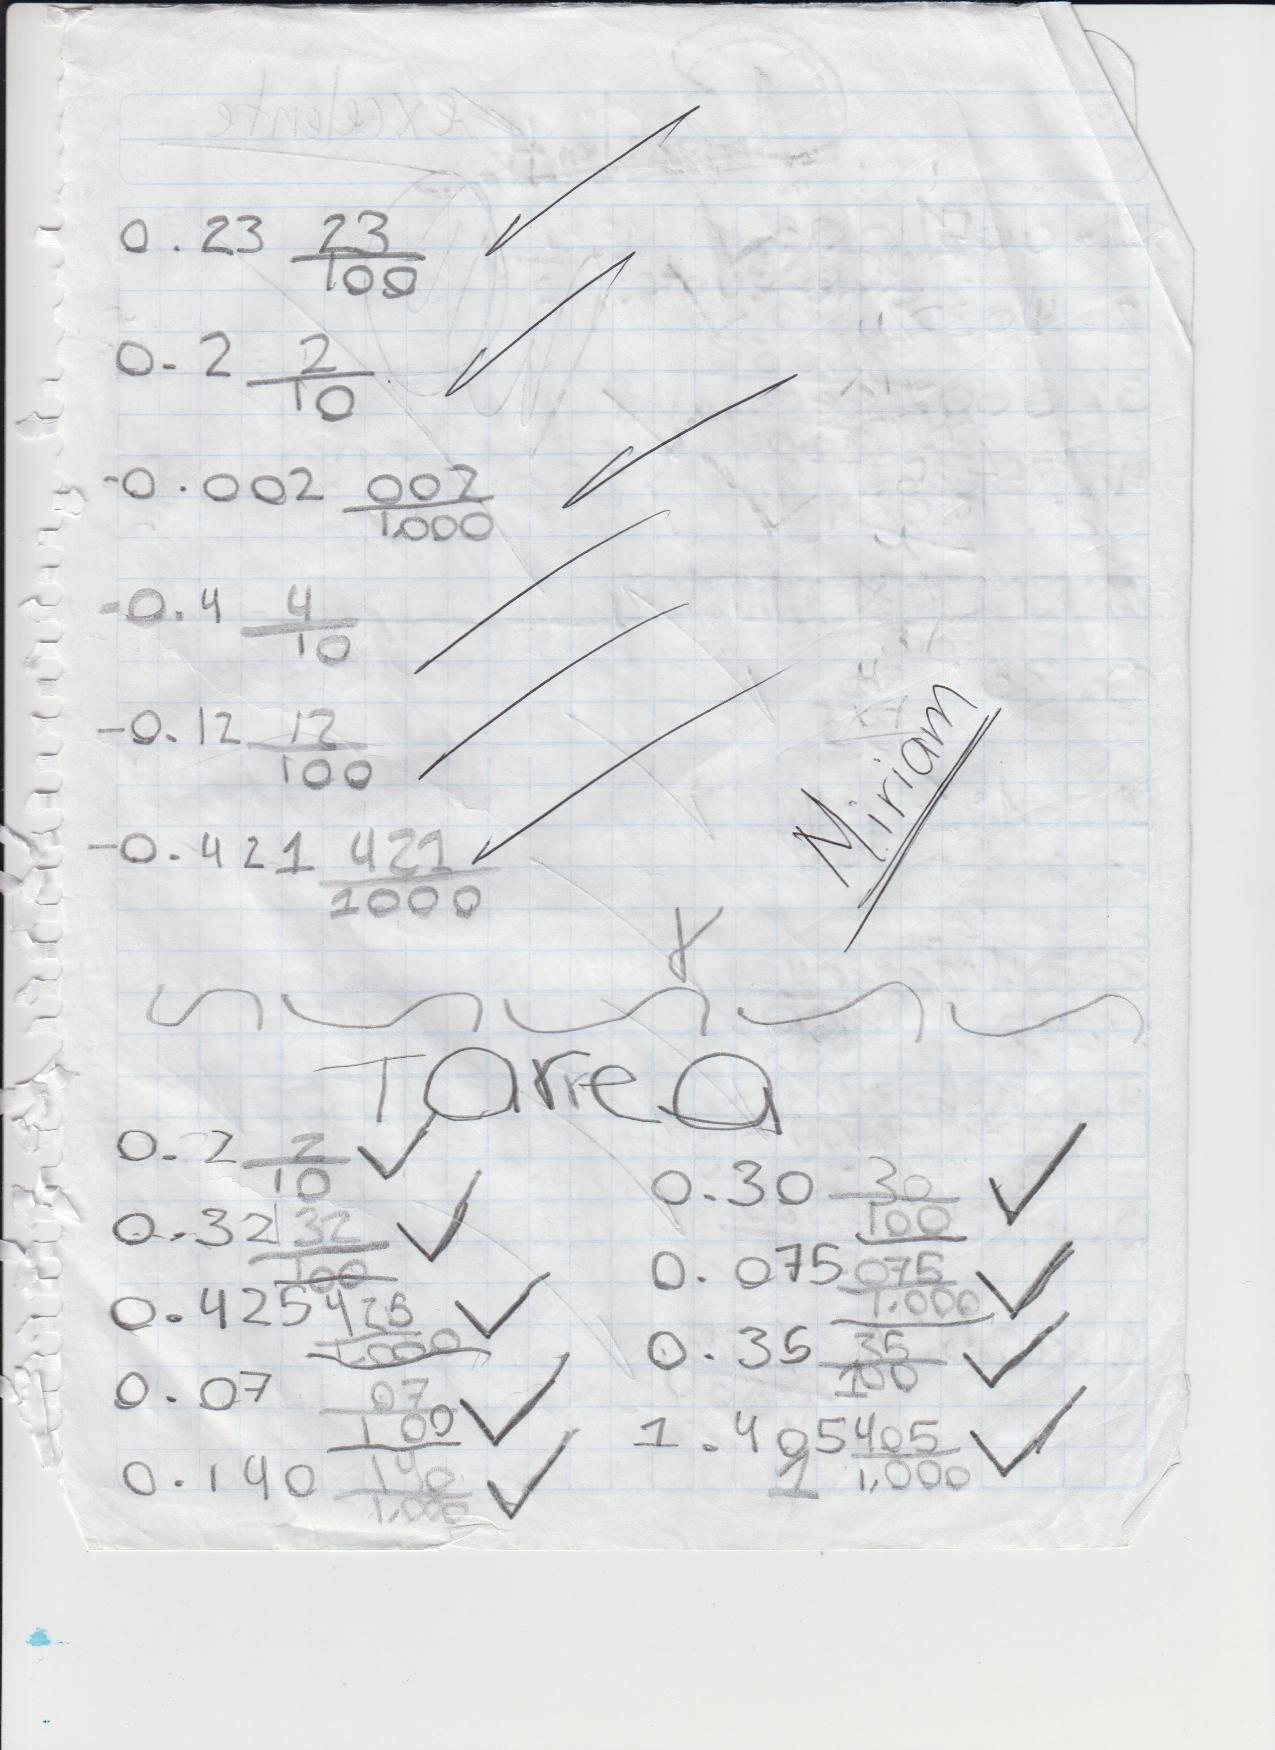 0.23 23/100
0.2 2/10
-0.002 002/1000
-0.4 4/10
-0.12 12/100
-0.421 421/1000
Miriam
Tarrea
0.2 2/10
0.32 32/100
0.425 425/1000
0.07 07/100
0.140 140/1,000
0.30 30/100
0.075 075/1.000
0.35 35/100
1.405 1 405/1,000